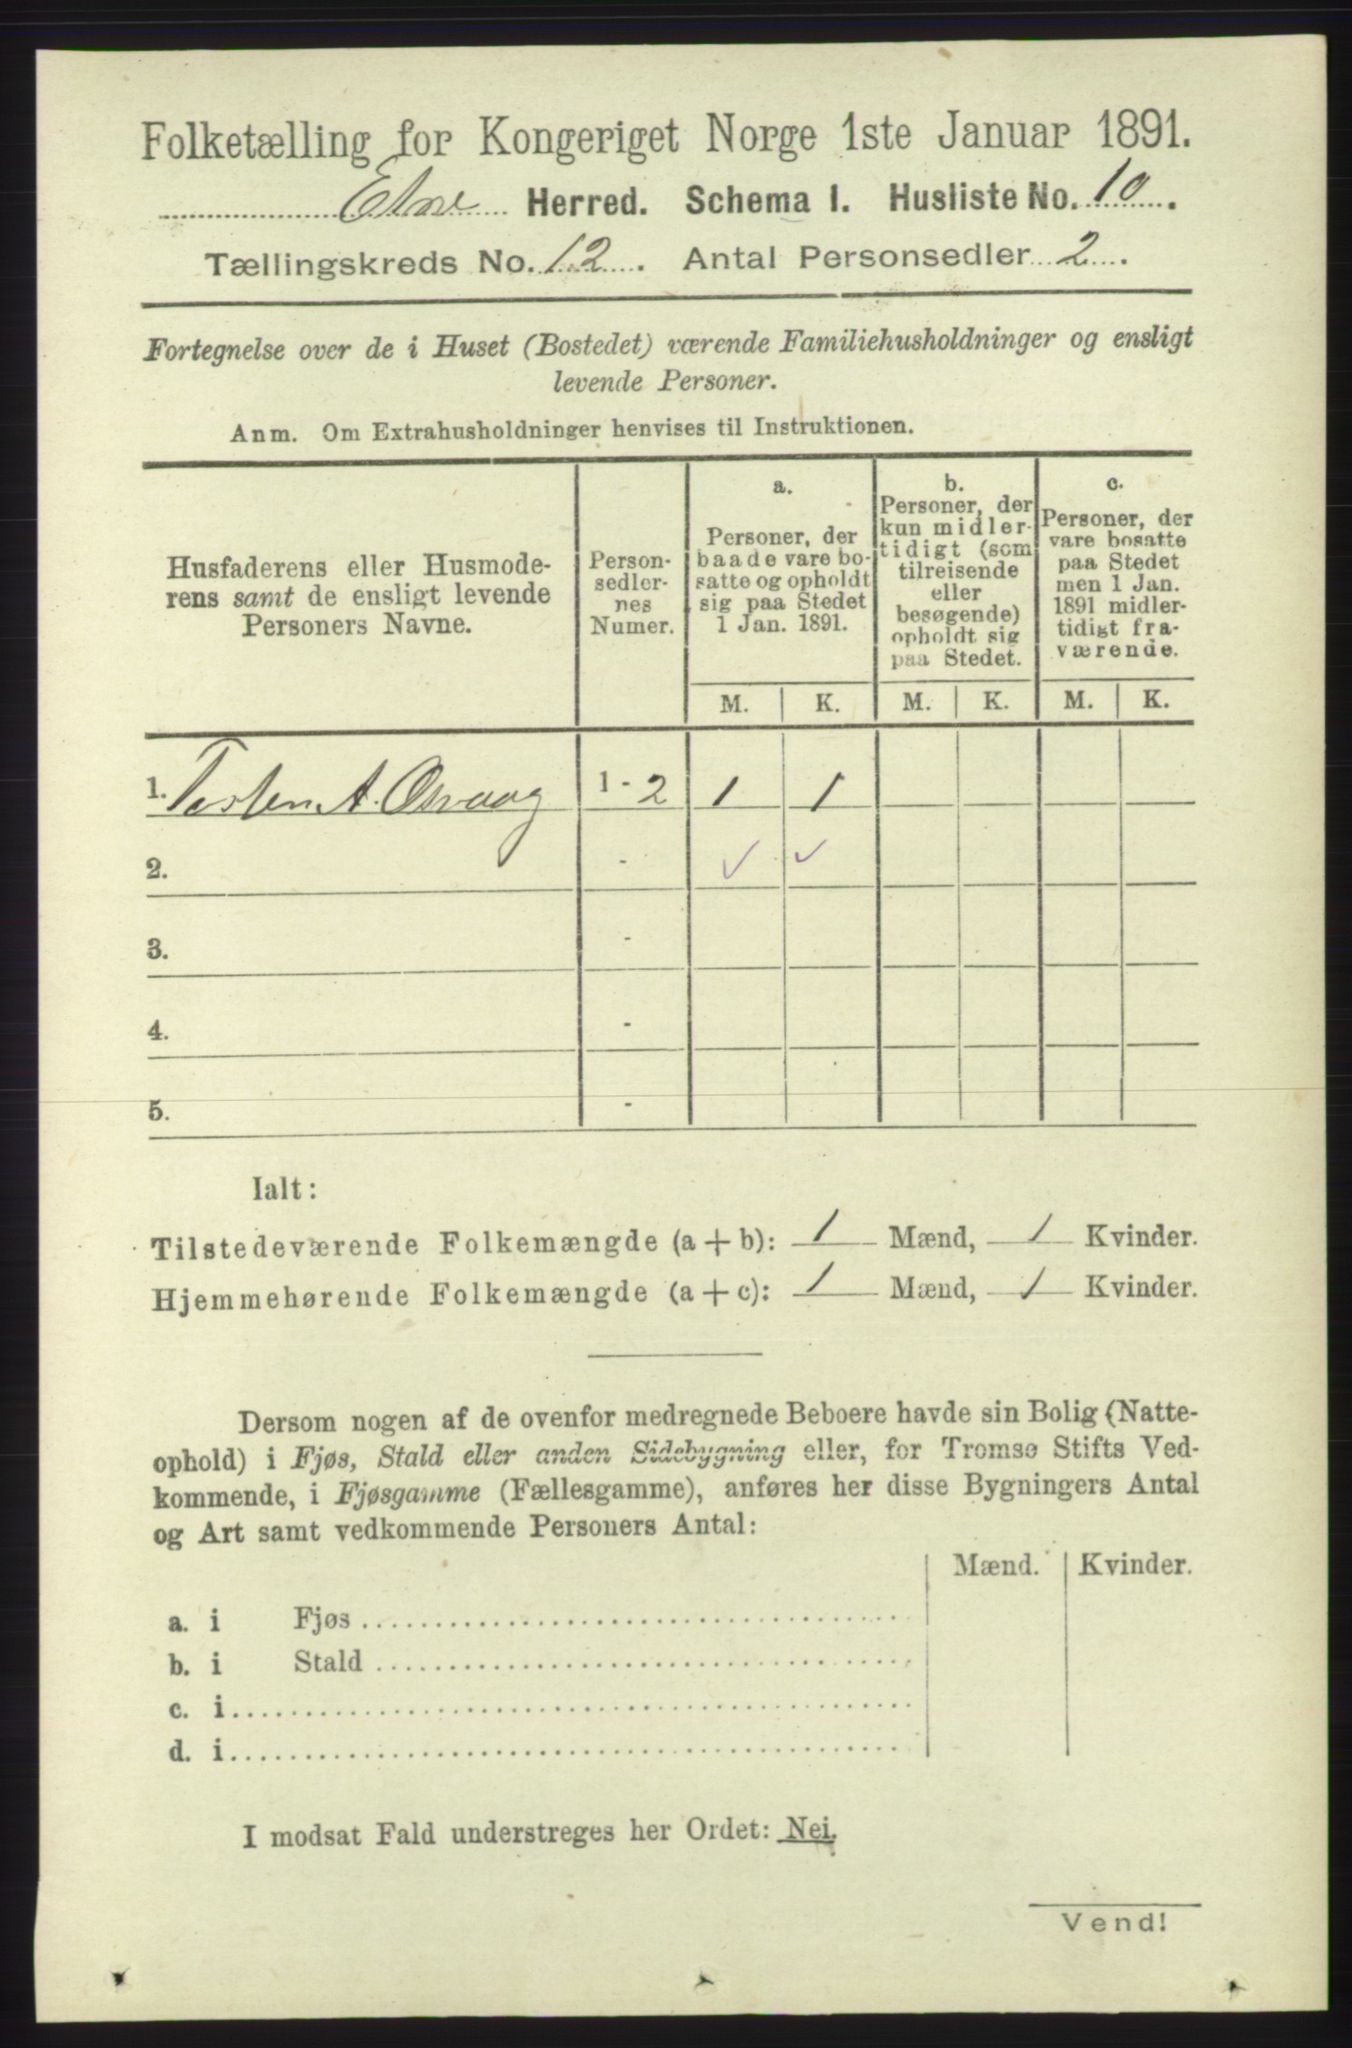 Folketælling for Kongeriget Norge 1ste Januar 1891.
Etne Herred. Schema I. Husliste No. 10.
Tællingskreds No. 12. Antal Personsedler 2.
Fortegnelse over de i Huset (Bostedet) værende Familiehusholdninger og ensligt
levende Personer.
Anm. Om Extrahusholdninger henvises til Instruktionen.
Husfaderens eller Husmode-
rens samt de ensligt levende
Personers Navne.
Person-
sedler-
nes
Numer.
a.
Personer, der
baade vare bo-
satte og opholdt
sig paa Stedet
1 Jan. 1891.
b.
Personer, der
kun midler-
tidigt (som
tilreisende
eller
besøgende)
opholdt sig
paa Stedet.
c.
Personer, der
vare bosatte
paa Stedet
men 1 Jan.
1891 midler-
tidigt fra-
værende.
M. K. M. K. M. K.
1. Torsten A. Osvaag 1 - 2 1 1
2. - ✓ ✓
3. -
4. -
5. -
Ialt:
Tilstedeværende Folkemængde (a + b): 1 Mænd, 1 Kvinder.
Hjemmehørende Folkemængde (a + c): 1 Mænd, 1 Kvinder.
Dersom nogen af de ovenfor medregnede Beboere havde sin Bolig (Natte-
ophold) i Fjøs, Stald eller anden Sidebygning eller, for Tromsø Stifts Ved-
kommende, i Fjøsgamme (Fællesgamme), anføres her disse Bygningers Antal
og Art samt vedkommende Personers Antal:
Mænd. Kvinder.
a. i Fjøs
b. i Stald
c. i
d. i
I modsat Fald understreges her Ordet: Nei.
Vend!